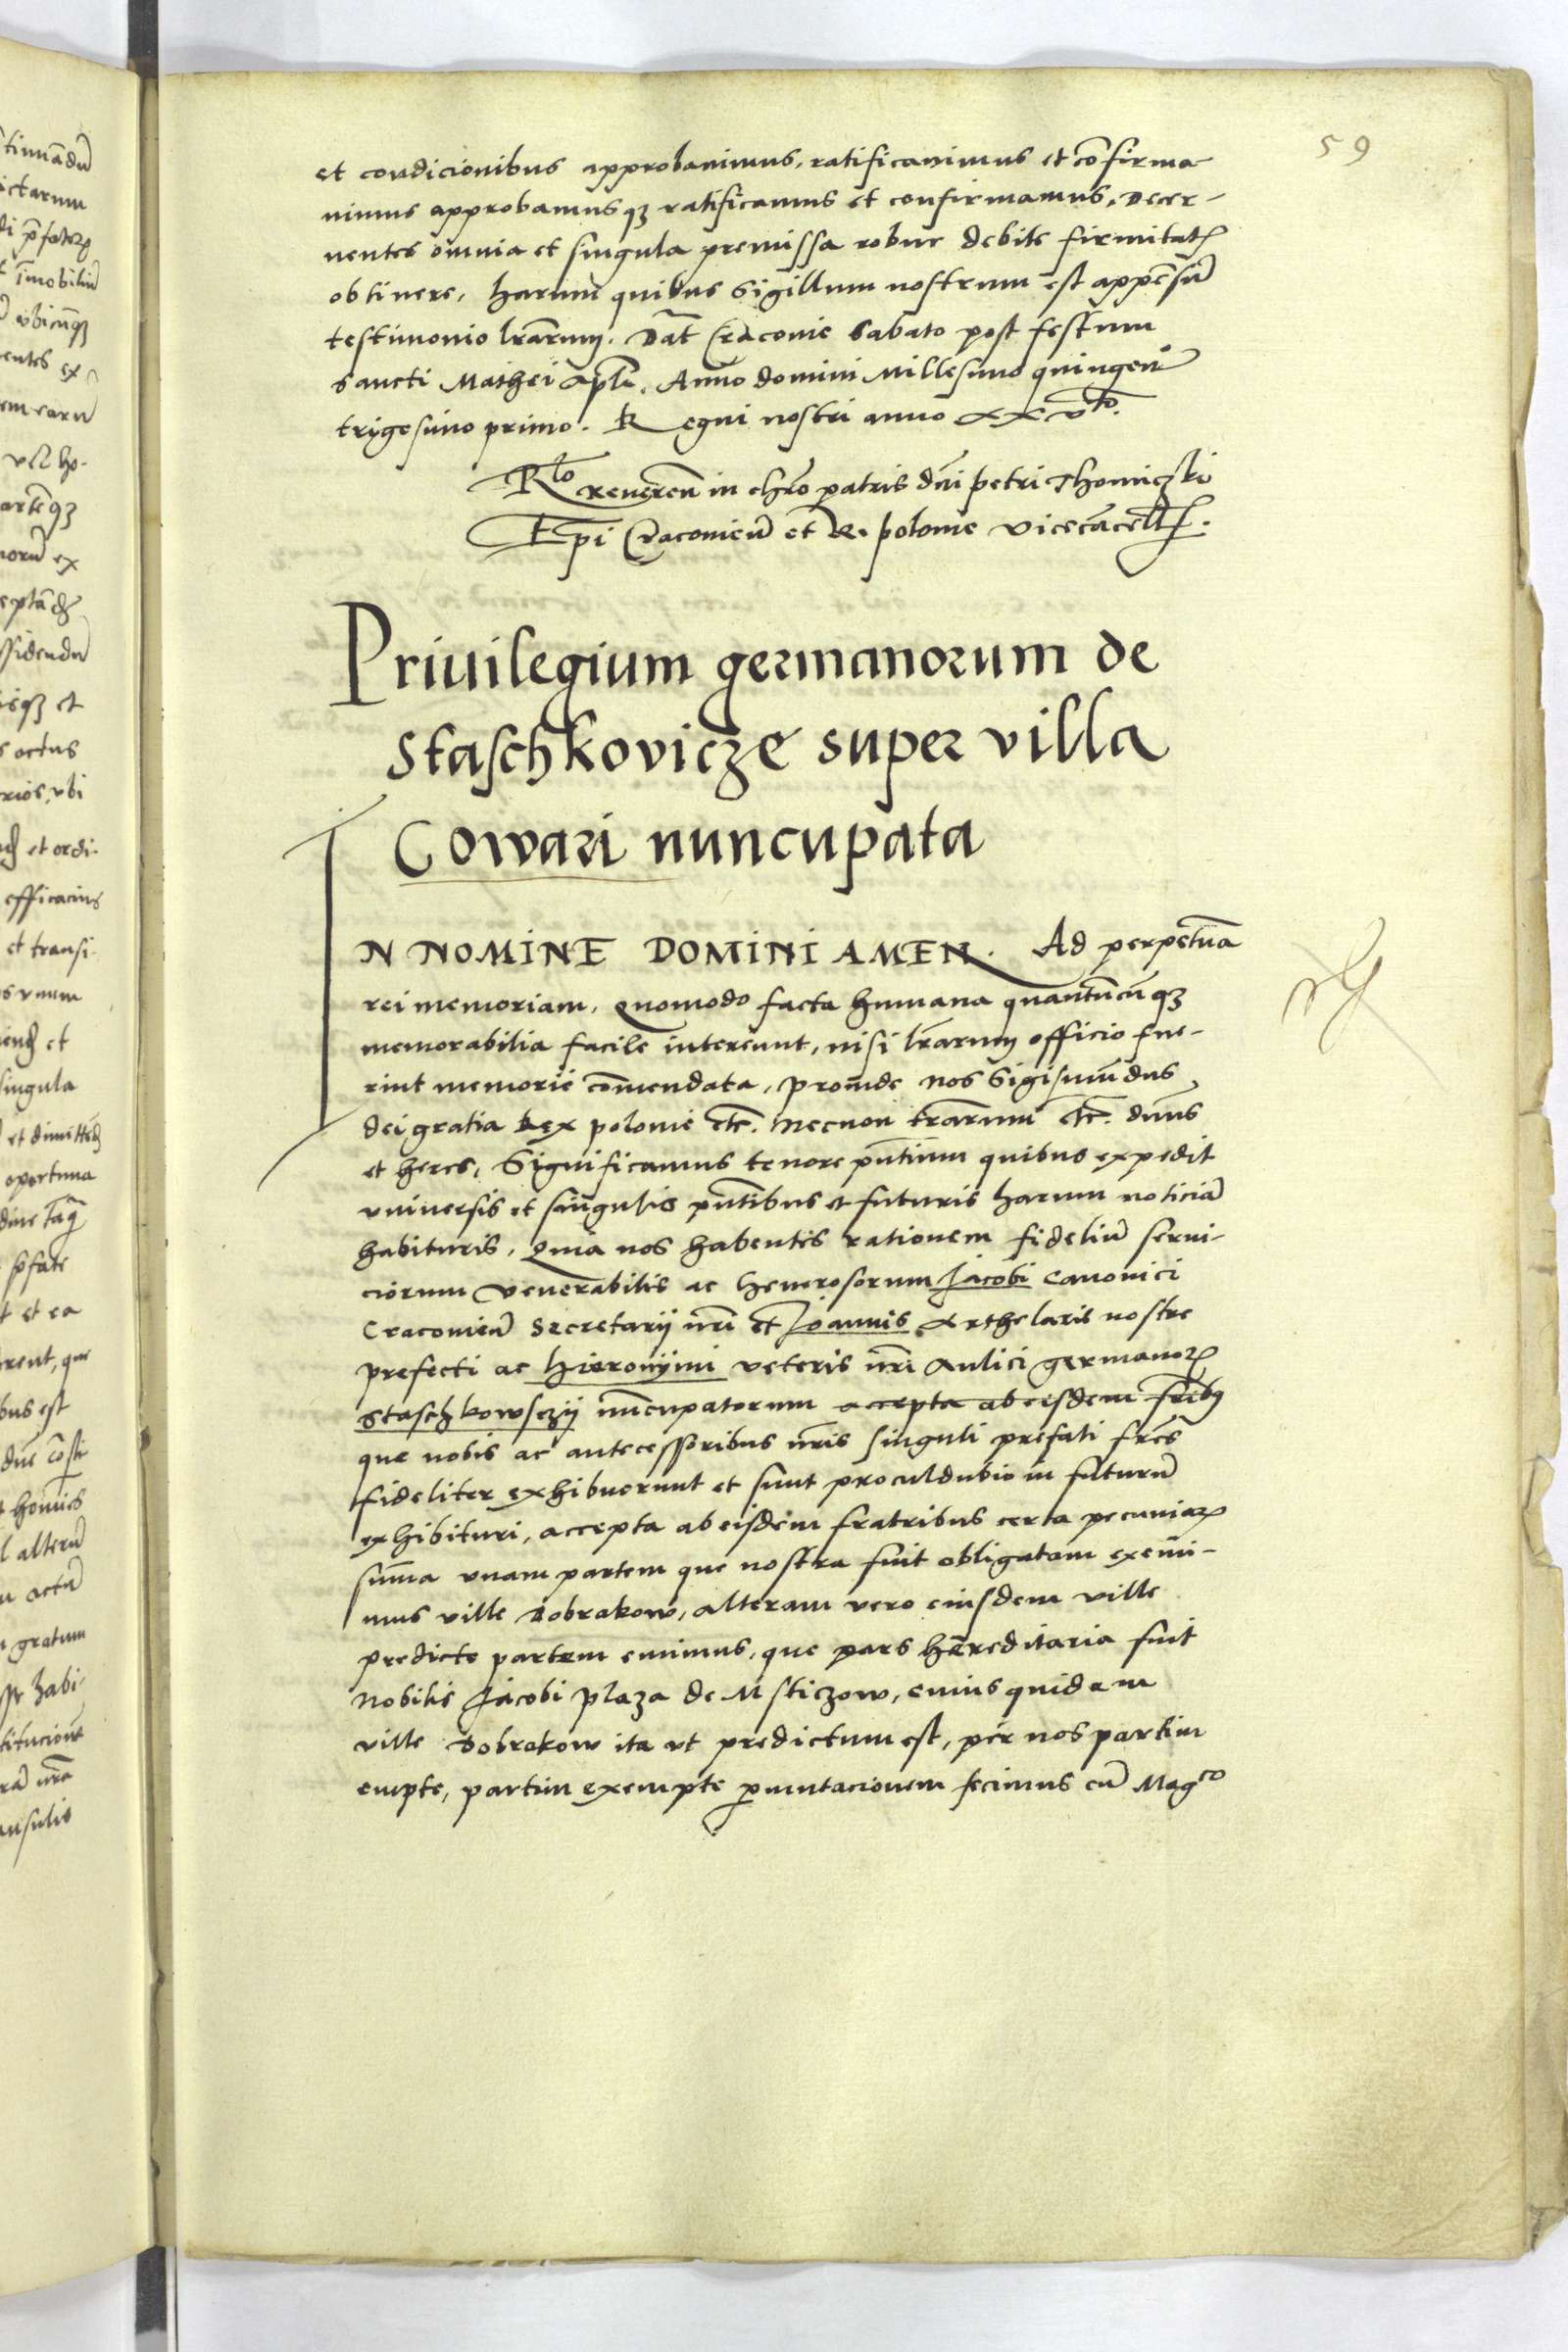 59
et condicionibus approbauimus, ratificauimus et cōfirma-
uimus approbamusqʒ ratificamus et confirmamus, Decer-
nentes omnia et singula premissa robur debite firmitatꝭ
obtinere, harum quibus Sigillum nostrum est appēsū
testimonio lr̄arum. Dat̄ Cracouie Sabato post festum
sancti Mathei apl̄i. Anno domini Millesimo quingen̄
trigesimo primo. Regni nostri anno xxvto.
Rlo reueren̄ in chr̄o patris dn̄i petri Thomiczki
Epi Cracouien̄ et R. polonie vicecācell
Priuilegium germanorum de
Staschkovicze super villa
Cowari nuncupata
IN NOMINE DOMINI AMEN. Ad perpetuā
rei memoriam, Quomodo facta humana quantūcūqʒ
memorabilia facile intereunt, nisi lr̄arum officio fue-
rint memorie cōmendata, proinde nos Sigismūdus
dei gratia Rex polonie etc̄. necnon tr̄arum etc̄. dn̄us
et heres, Significamus tenore pn̄tium quibus expedit
vniuersis et singulis pn̄tibus et futuris harum noticiā
habituris, Quia nos habentes rationem fideliū serui-
ciorum venerabilis ac henerosorum Jacobi Canonici
Cracouien̄ Secretarij nr̄i et Joannis Arthelarie nostre
prefecti ac Hieronijmi veteris nr̄i aulici germanoꝝ
Staschkowsczij nūcupatorum accepta ab eisdem fr̄ibꝰ
que nobis ac antecessoribus nr̄is singuli prefati fr̄es
fideliter exhibuerunt et sunt proculdubio in futurū
exhibituri, accepta ab eisdem fratribus certa pecuniaꝝ
sūma vnam partem que nostra fuit obligatam exemi-
mus ville Dobrakow, alteram vero eiusdem ville
predicte partem emimus, que pars hereditaria fuit
Nobilis Jacobi plaza de Msticzow, cuius quidem
ville Dobrakow ita vt predictum est, per nos partim
empte, partim exempte ꝑmutacionem fecimus cū Magco